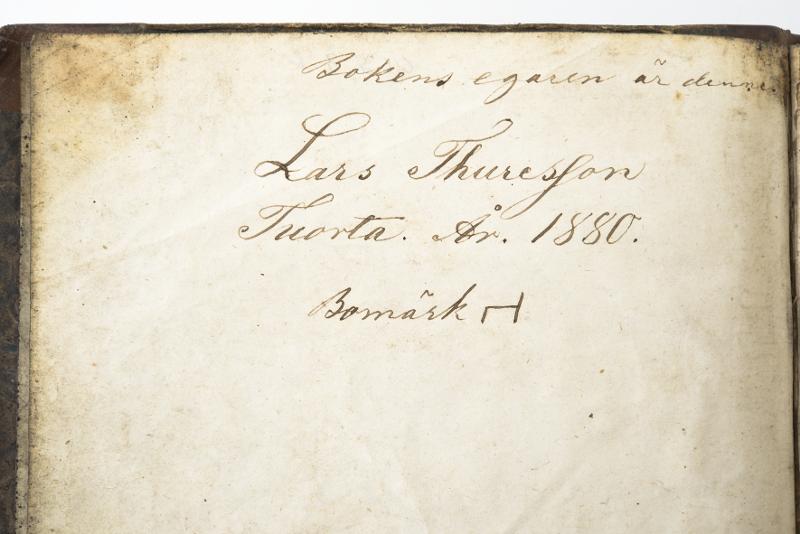 Bokens egaren är denne.
Lars Thuresson
Tuorta. År. 1880.
Bomärk